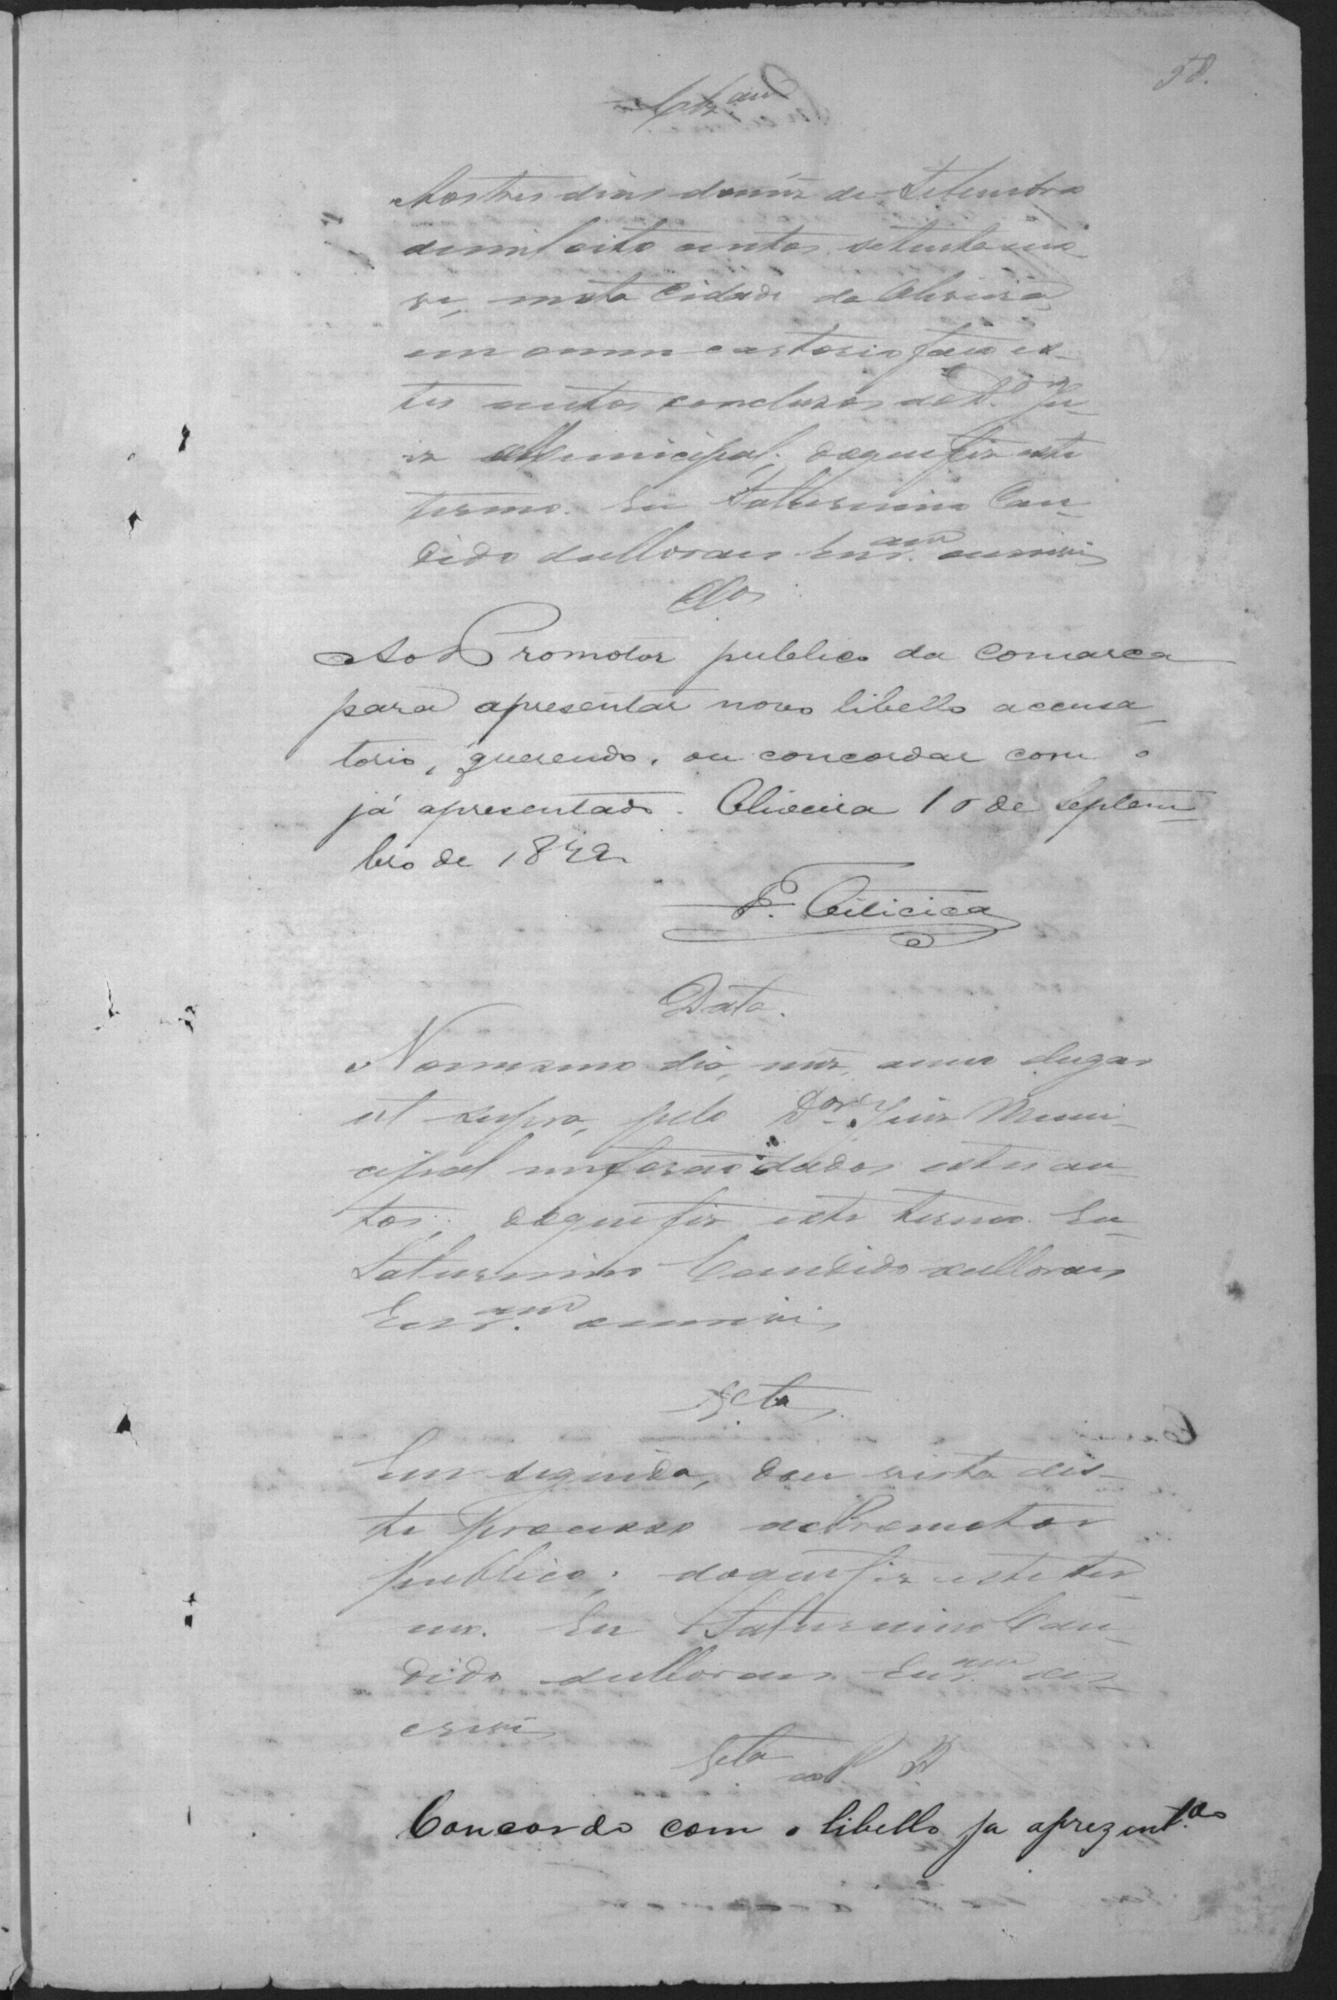 58.
Clz.am
Aos tres dias do mez de Setembro
de mil oito centos setenta e no
ve, nesta Cidade de Oliveira,
em o meu cartorio faço es-
tes autos conclusos ao D.or Ju-
iz Municipal; do que fiz este
termo. Eu Saturnino Can-
dido de Moraes Escr.am o escrevi
Clos
Ao Promotor publico da comarca
para apresentar novo libello accusa-
torio, querendo, ou concordar com o
já apresentado. Oliveira 10 de Septem-
bro de 1879.
Data.
No mesmo dia, mez, anno e lugar
ut supra, pelo D.or Juiz Muni-
cipal me forão dados estes au-
tos; do que fiz este termo. Eu
Saturnino Candido de Moraes
Escr.am o escrevi
Vcta
Em seguida, dou vista des-
te processo ao Promotor
publico; do que fiz este ter
mo. Eu Saturnino Can-
dido de Moraes Escr.am o es-
crevi
Vcta ao P. P.
Concordo com o libello ja aprezent.ado